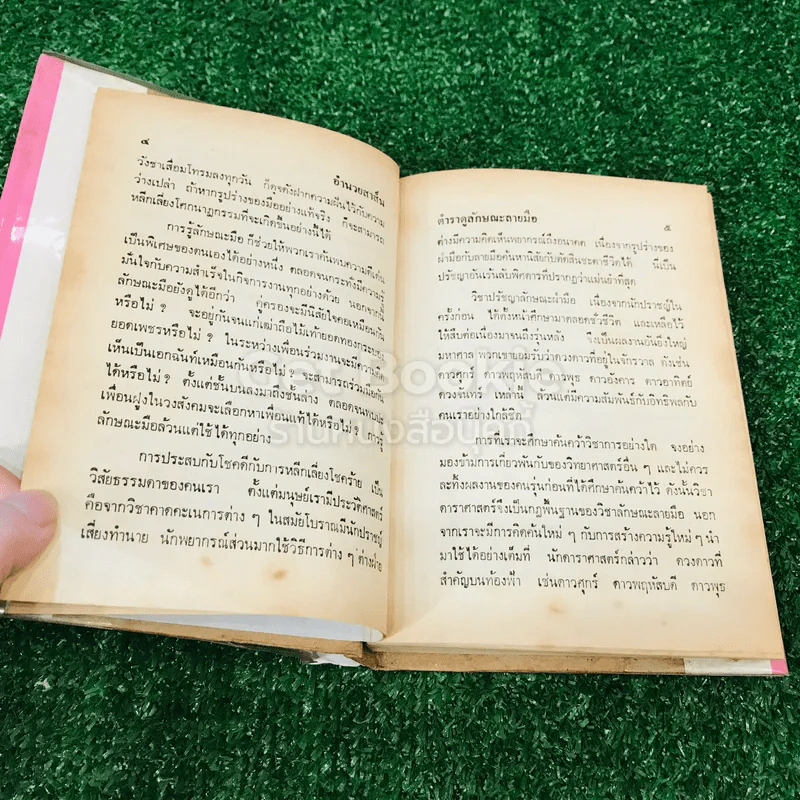 ๔
อำนวยสาส์น
วังชาเสื่อมโทรมลงทุกวัน ก็ดุจดังฝากความฝันไว้กับความ
ว่างเปล่า ถ้าหากรูปร่างของมืออย่างแท้จริง ก็จะสามารถ
หลีกเลี่ยงโศกนาฏกรรมที่จะเกิดขึ้นอย่างนี้ได้
การรู้ลักษณะมือ ก็ช่วยให้พวกเราค้นพบความดีเด่น
เป็นพิเศษของตนเองได้อย่างหนึ่ง ตลอดจนกระทั่งมีความรู้
มั่นใจกับความสำเร็จในกิจการงานทุกอย่างด้วย นอกจากนี้
ลักษณะมือยังดูได้อีกว่า คู่ครองจะมีนิสัยใจคอเหมือนกัน
หรือไม่ ? จะอยู่กันจนแก่เฒ่าถือไม้เท้ายอดทองกระบอง
ยอดเพชรหรือไม่ ? ในระหว่างเพื่อนร่วมงานจะมีความ
เห็นเป็นเอกฉันท์เหมือนกันหรือไม่ ? จะสามารถร่วมมือกัน
ได้หรือไม่ ? ตั้งแต่ชั้นบนลงมาถึงชั้นล่าง ตลอดจนพบปะ
เพื่อนฝูงในวงสังคมจะเลือกหาเพื่อนแท้ได้หรือไม่ ? การรู้
ลักษณะมือล้วนแต่ใช้ได้ทุกอย่าง
การประสบกับโชคดีกับการหลีกเลี่ยงโชคร้าย เป็น
วิสัยธรรมดาของคนเรา ตั้งแต่มนุษย์เรามีประวัติศาสตร์
คือจากวิชาคาดคะเนการต่าง ๆ ในสมัยโบราณมีนักปราชญ์
เสี่ยงทำนาย นักพยากรณ์ส่วนมากใช้วิธีการต่าง ๆ ต่างฝ่าย
ตำราดูลักษณะลายมือ
๕
ต่างมีความคิดเห็นพยากรณ์ถึงอนาคต เนื่องจากรูปร่างของ
ฝ่ามือกับลายมือค้นหานิสัยกับตัดสินชะตาชีวิตได้ นี่เป็น
ปรัชญาอันเร้นลับพิศดารที่ปรากฏว่าแม่นยำที่สุด
วิชาปรัชญาลักษณะฝ่ามือ เนื่องจากนักปราชญ์ใน
ครั้งก่อน ได้ตั้งหน้าศึกษามาตลอดชั่วชีวิต และเหลือไว้
ให้สืบต่อเนื่องมาจนถึงรุ่นหลัง จึงเป็นผลงานอันยิ่งใหญ่
มหาศาล พวกเขายอมรับว่าดวงดาวที่อยู่ในจักรวาล ดังเช่น
ดาวศุกร์ ดาวพฤหัสบดี ดาวพุธ ดาวอังคาร ดาวอาทิตย์
ดวงจันทร์ เหล่านี้ ล้วนแต่มีความสัมพันธ์กับอิทธิพลกับ
คนเราอย่างใกล้ชิด
การที่เราจะศึกษาค้นคว้าวิชาการอย่างใด จงอย่าง
มองข้ามการเกี่ยวพันกับของวิทยาศาสตร์อื่น ๆ และไม่ควร
ละทิ้งผลงานของคนรุ่นก่อนที่ได้ศึกษาค้นคว้าไว้ ดังนั้นวิชา
ดาราศาสตร์จึงเป็นกฎพื้นฐานของวิชาลักษณะลายมือ นอก
จากเราจะมีการคิดค้นใหม่ ๆ กับการสร้างความรู้ใหม่ ๆ นำ
มาใช้ได้อย่างเต็มที่ นักดาราศาสตร์กล่าวว่า ดวงดาวที่
สำคัญบนท้องฟ้า เช่นดาวศุกร์ ดาวพฤหัสบดี ดาวพุธ
Get Bookie
ร้านหนังสือบุ๊คกี้